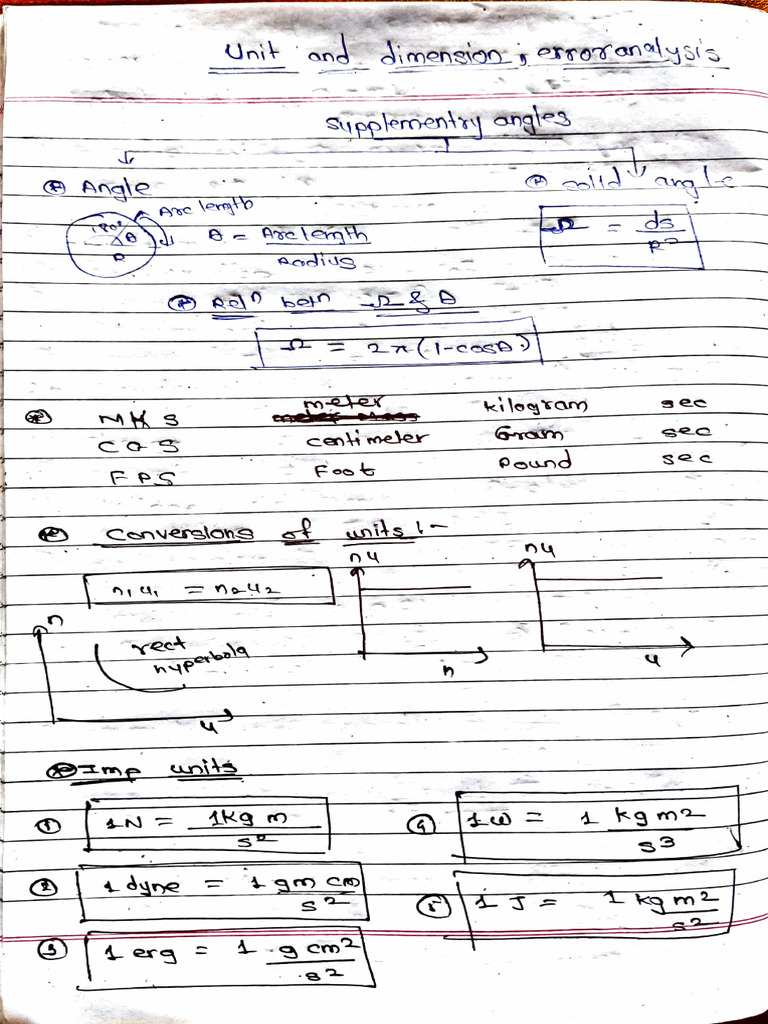 Unit and dimension, error analysis
supplementry angles
Angle
solid angle
Arc length
180°
θ
R
θ = Arc length / Radius
Ω = ds / R²
Relⁿ betⁿ Ω & θ
Ω = 2π(1-cosθ)
MKS meter kilogram sec
CGS centimeter Gram sec
FPS Foot Pound sec
Conversions of units :-
n₁u₁ = n₂u₂
nu
n
nu
u
n
rect
hyperbola
u
Imp units
① 1N = 1kg m / s²
④ 1ω = 1 kg m2 / s3
② 1 dyne = 1 gm cm / s²
⑤ 1 J = 1 kg m² / s²
③ 1 erg = 1 g cm² / s²